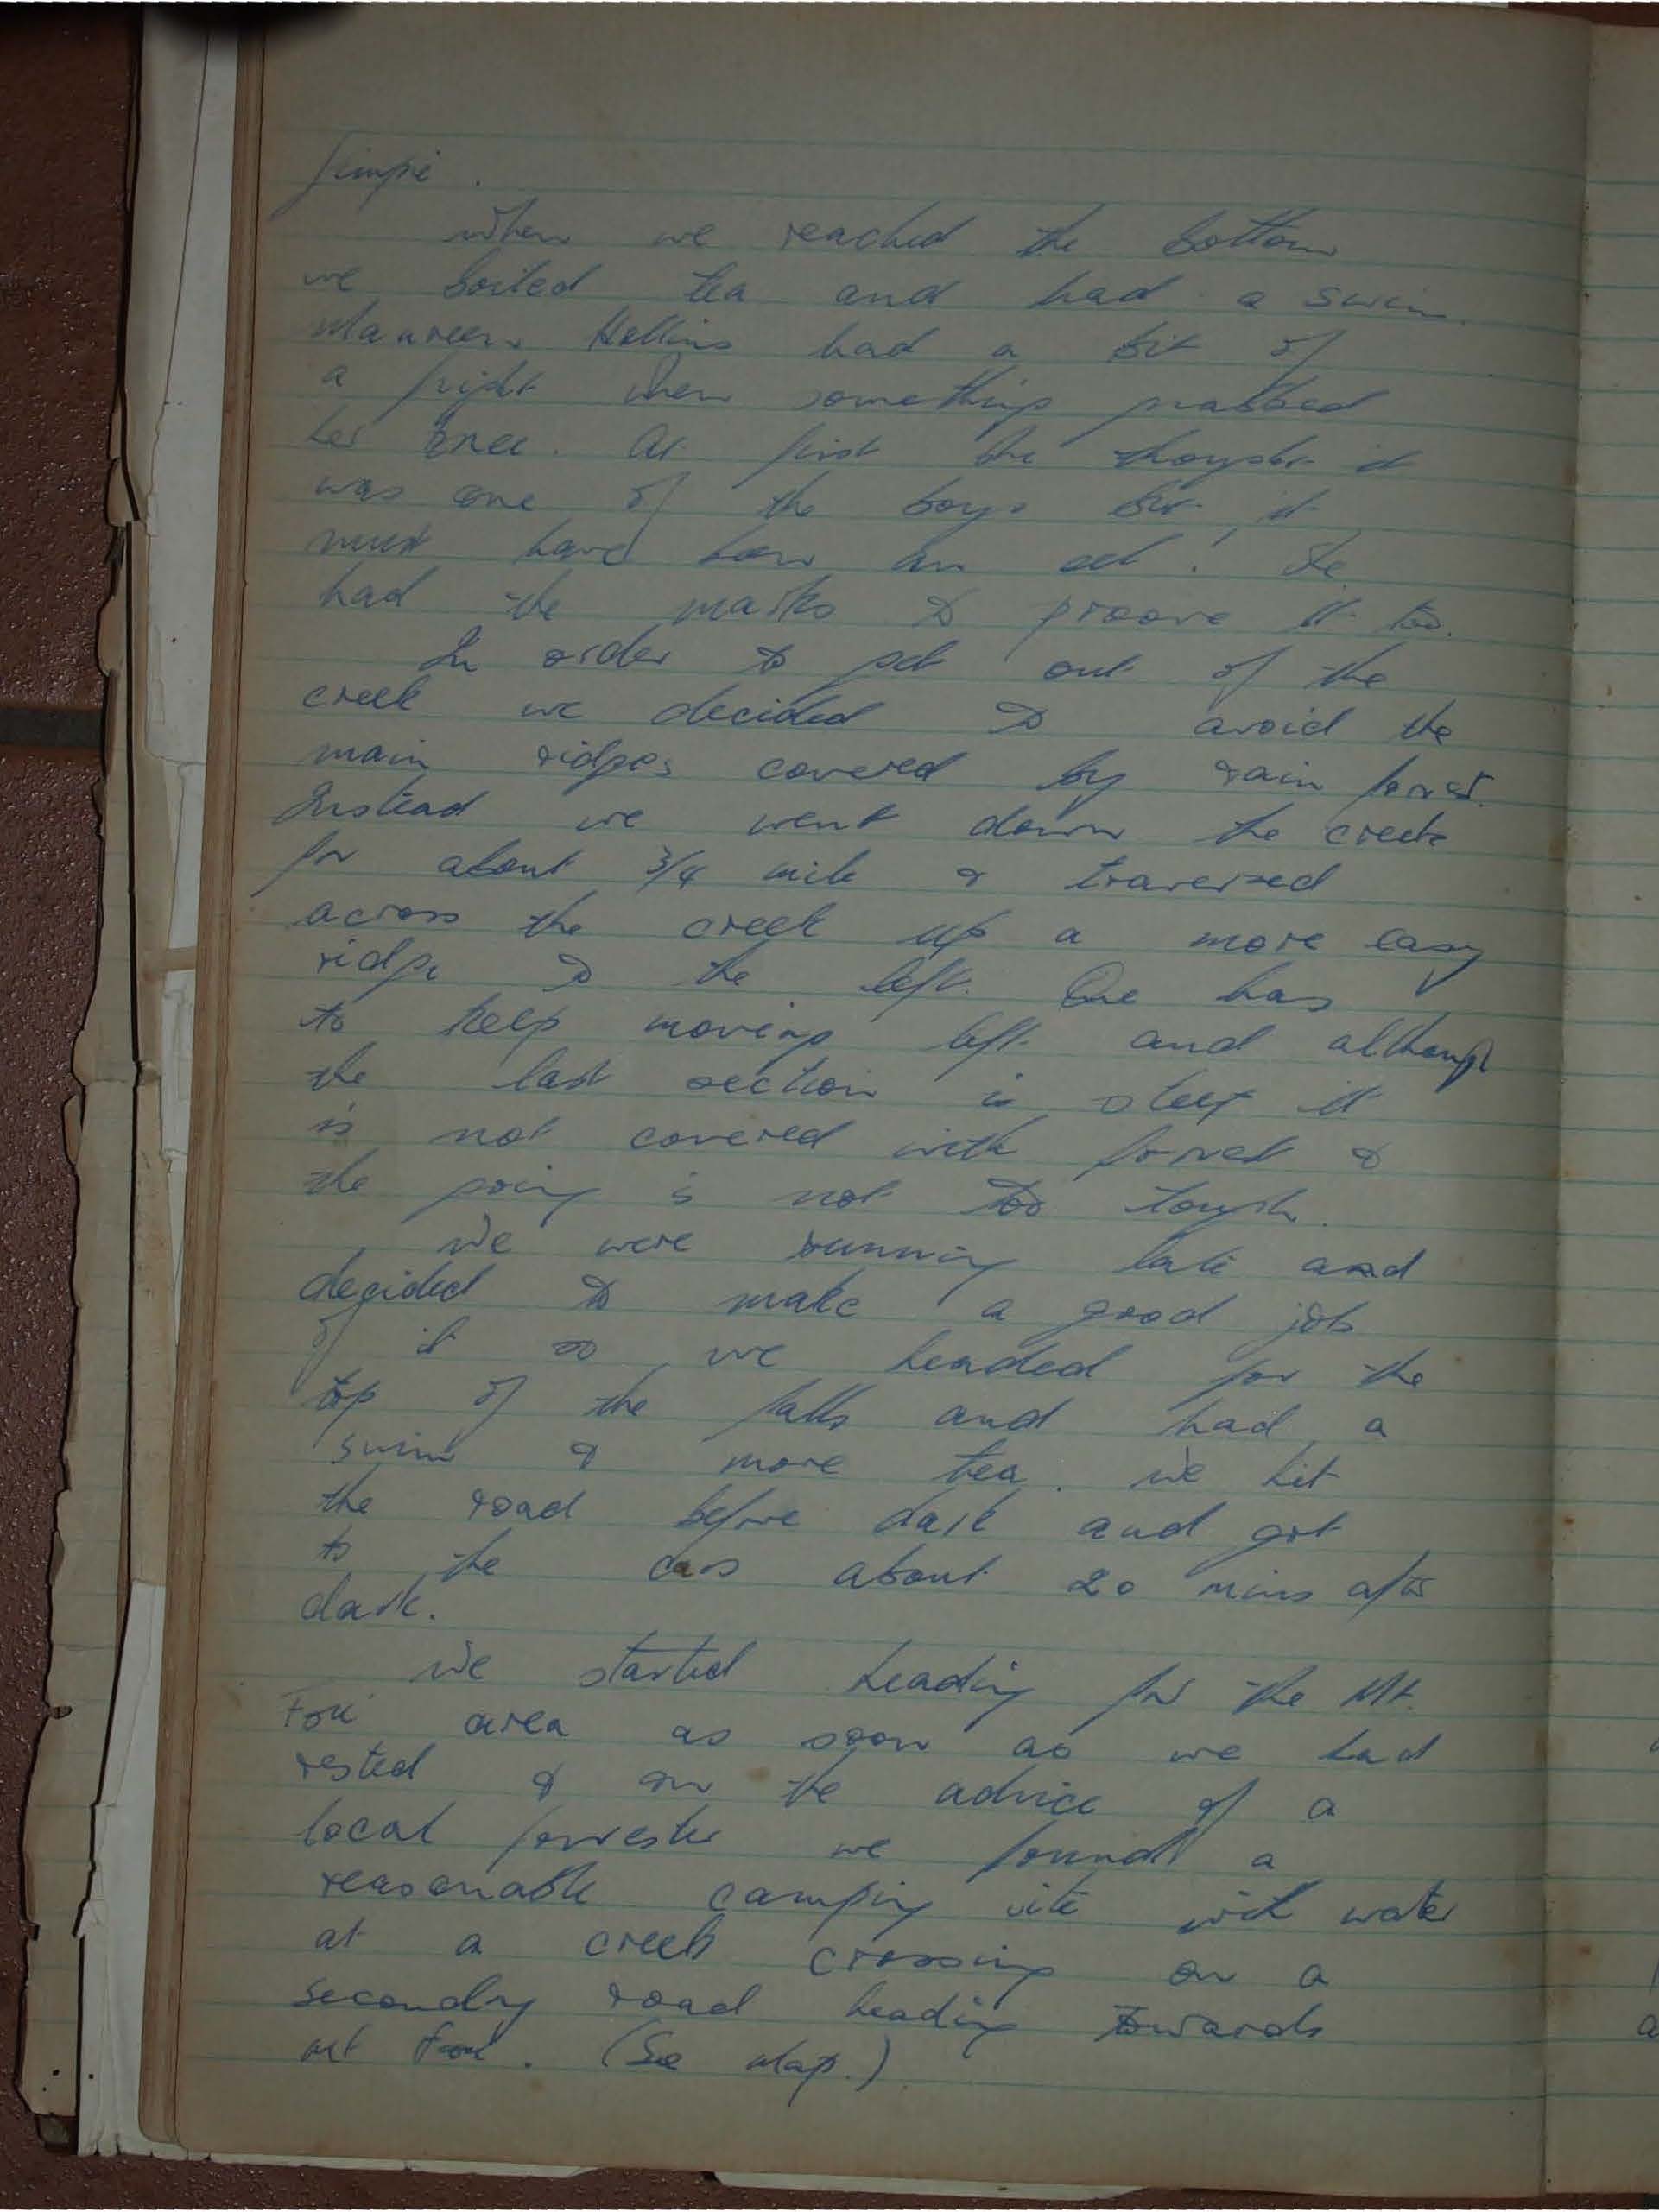 Jimpi.
When we reached the bottom
we boiled tea and had a swim.
Maureen Hollins had a bit of
a fright when something grabbed
her knee. At first she thought it
was one of the boys but it
must have been an eel! She
had the marks to proove it too.
In order to get out of the
creek we decided to avoid the
main ridges covered by rain forest.
Instead we went down the creek
for about 3/4 mile & traversed
across the creek up a more easy
ridge to the left. One has
to keep moving left and although
the last section is steep it
is not covered with forest &
the going is not too tough.
We were running late and
decided to make a good job
of it so we headed for the
top of the falls and had a
swim & more tea. We hit
the road before dark and got
to the cars about 20 mins after
dark.
We started heading for the Mt.
Fox area as soon as we had
rested & on the advice of a
local forrester we found a
reasonable camping site with water
at a creek crossing on a
secondry road heading towards
Mt Fox. (See Map.)